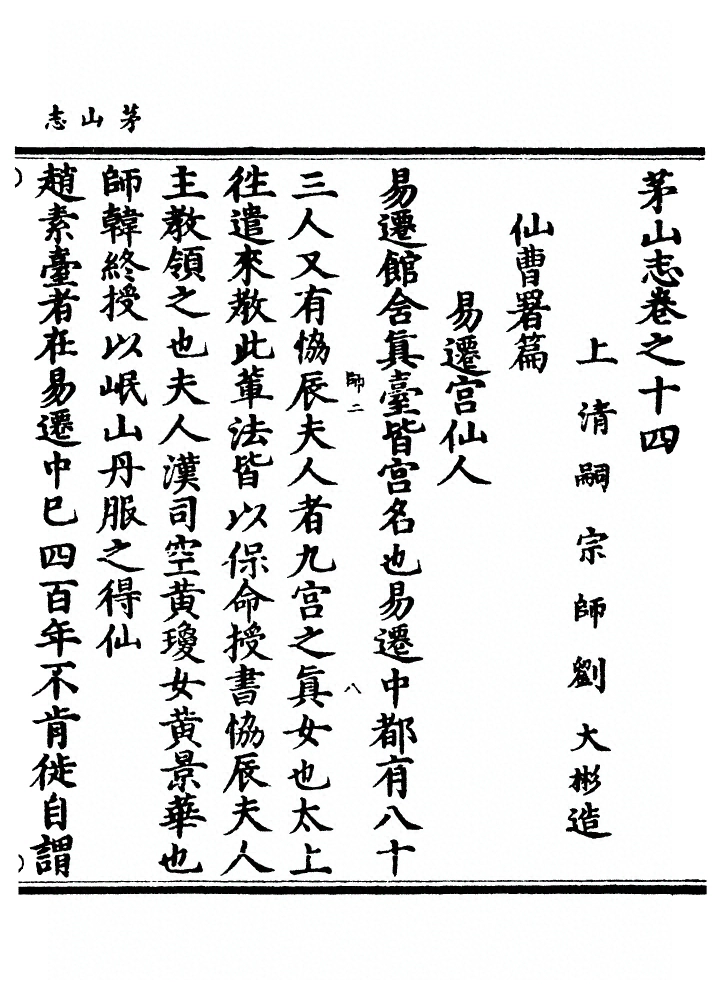 茅山志
茅山志卷之十四
上清嗣宗師劉大彬造
仙曹署篇
易遷宮仙人
易遷館舍真臺皆宮名也易遷中都有八十
師二
八
三人又有恊辰夫人者九宮之真女也太上
徃遣來教此軰法皆以保命授書恊辰夫人
主教領之也夫人漢司空黃瓊女黃景華也
師韓終授以岷山丹服之得仙
趙素臺者在易遷中已四百年不肯徙自謂